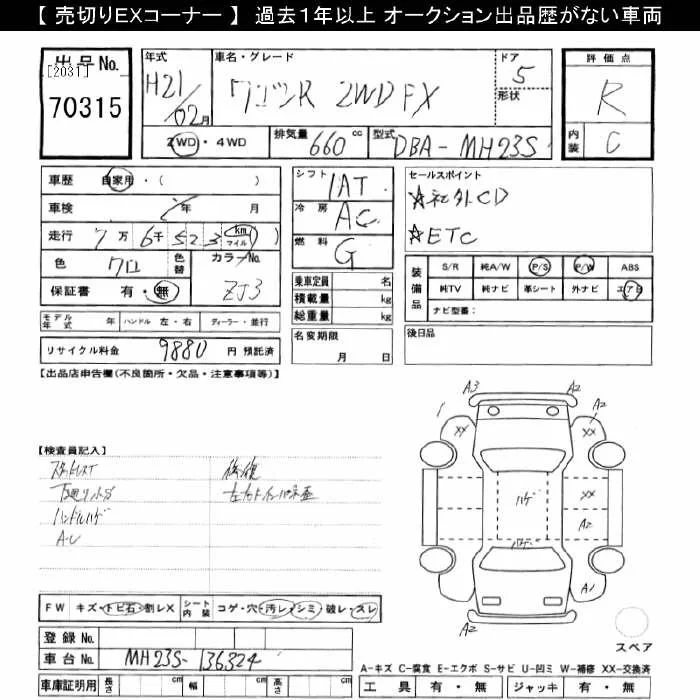 【 売切りEXコーナー 】 過去１年以上 オークション出品歴がない車両
出品No.
[2031]
70315
年式
H21/02月
車名・グレード
ワゴンR 2WD FX
ドア
5
形状
評価点
R
内装
C
2WD・4WD
排気量 660 cc
型式 DBA-MH23S
車歴 自家用・( )
車検 年 月
走行 7万 6千 523 km マイル ( )
色 クロ 色替 カラーNo. ZJ3
保証書 有・無
シフト 1AT
冷房 AC
燃料 G
セールスポイント
☆社外CD
☆ETC
装備品
S/R 純A/W P/S P/W ABS
純TV 純ナビ 革シート 外ナビ エアB
ナビ型番:
乗車定員 名
積載量 kg
総重量 kg
モデル年式 年 ハンドル 左・右 ディーラー・並行
リサイクル料金 9880 円 預託済
名変期限
月 日
後日品
【出品店申告欄(不良箇所・欠品・注意事項等)】
【検査員記入】
下廻り小サビ
ハンドルハゲ
A・U
FW キズ・トビ石・割レX シート内装 コゲ・穴・汚レ・シミ・破レ・スレ
登録No.
車台No. MH23S-136324
車庫証明用 長さ cm 幅 cm 高さ cm
A3
A2
A2
XX
XX
XX
A2
ハゲ
ハゲ
A1
A2
スペア
A-キズ C-腐食 E-エクボ S-サビ U-凹ミ W-補修 XX-交換済
工具 有・無 ジャッキ 有・無